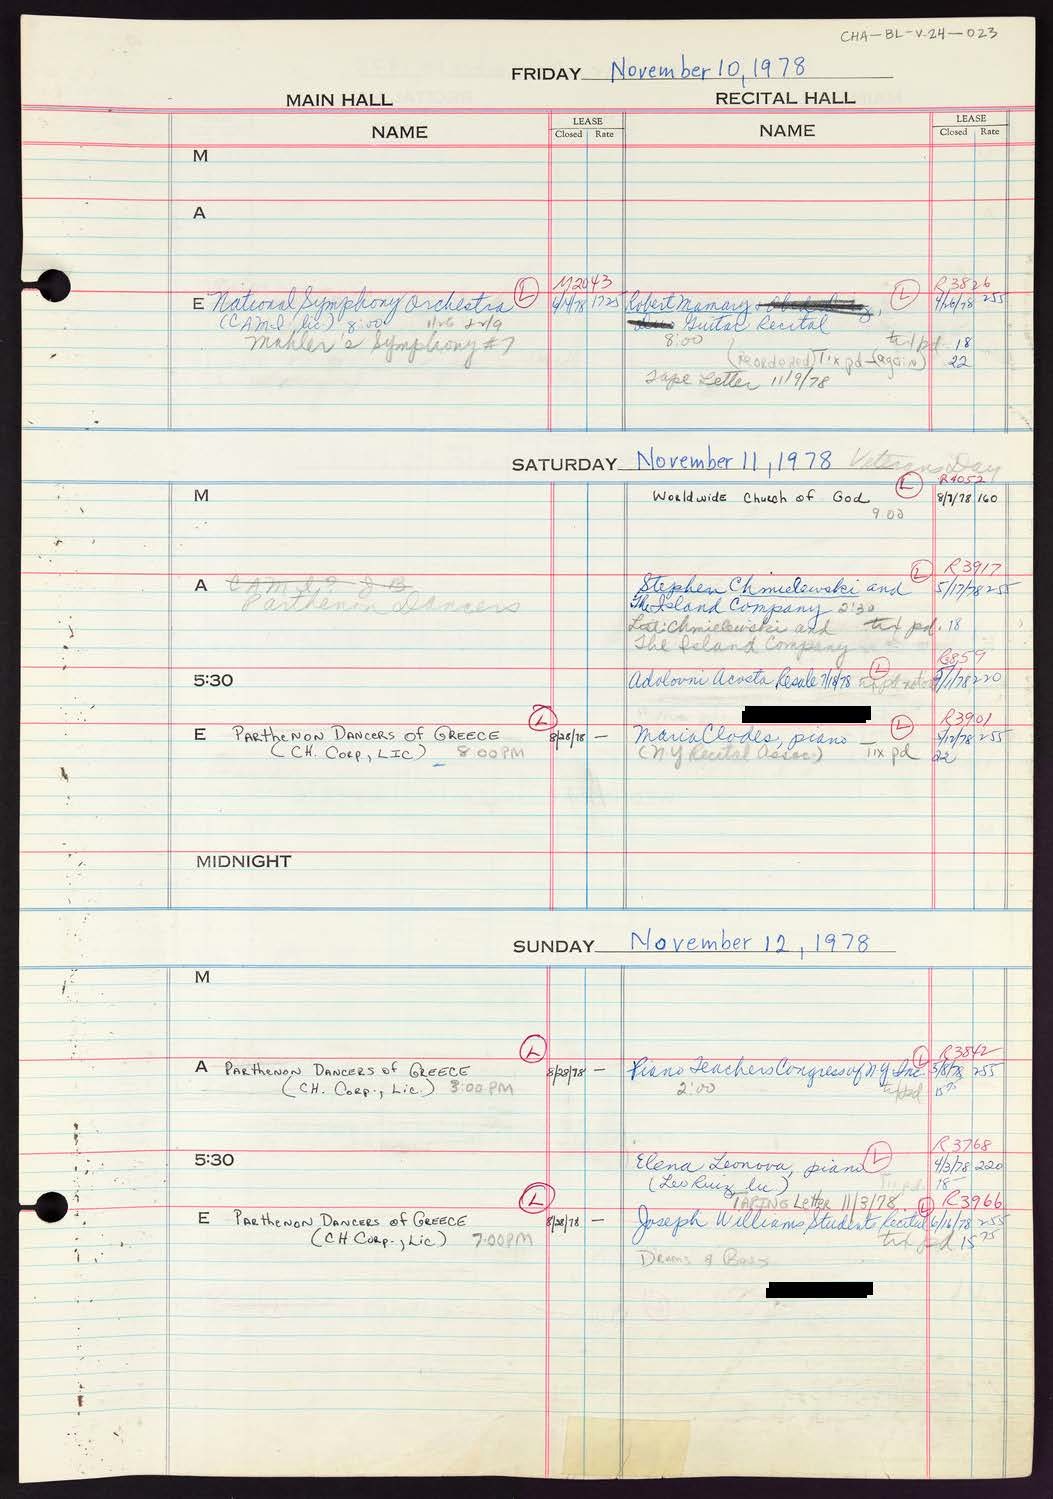 CHA-BL-V-24-023
FRIDAY November 10, 1978
MAIN HALL RECITAL HALL
NAME LEASE Closed Rate NAME LEASE Closed Rate
M
A
M2043 R3826
E National Symphony Orchestra L 1725 Robert Mamary L 255
(CAMI, lic) 8:00 Guitar Recital
Mahler's Symphony #7 8:00 18
(reordered) Tix pd (again) 22
Tape Letter 11/9/78
SATURDAY November 11, 1978 Veterans Day
L R4052
M Worldwide Church of God 8/7/78 160
9:00
L R3917
A Stephen Chmielewski and 5/17/78 255
Parthenon Dancers The Island Company 2:30
List: Chmielewski and tix pd. 18
The Island Company
R3859
5:30 Adolovni Acosta Resale 7/18/78 L 220
L R3901
E Parthenon Dancers of Greece L 8/28/78 — Maria Clodes, piano L 5/12/78 255
(CH. Corp, LIC) 8:00 PM (NY Recital Assoc.) Tix pd 22
MIDNIGHT
SUNDAY November 12, 1978
M
L R3842
A Parthenon Dancers of Greece 8/28/78 — Piano Teachers Congress of NY Inc. L 5/8/78 255
(CH. Corp., Lic.) 3:00 PM 2:00 tix pd
R3768
5:30 Elena Leonova, piano L 4/3/78 220
(Leo Ruiz, lic) 18
TAPING Letter 11/3/78 L R3966
E Parthenon Dancers of Greece L 8/28/78 — Joseph Williams Student Recital 6/16/78 255
(CH Corp., Lic) 7:00 PM tix pd 15 75
Drums & Bass